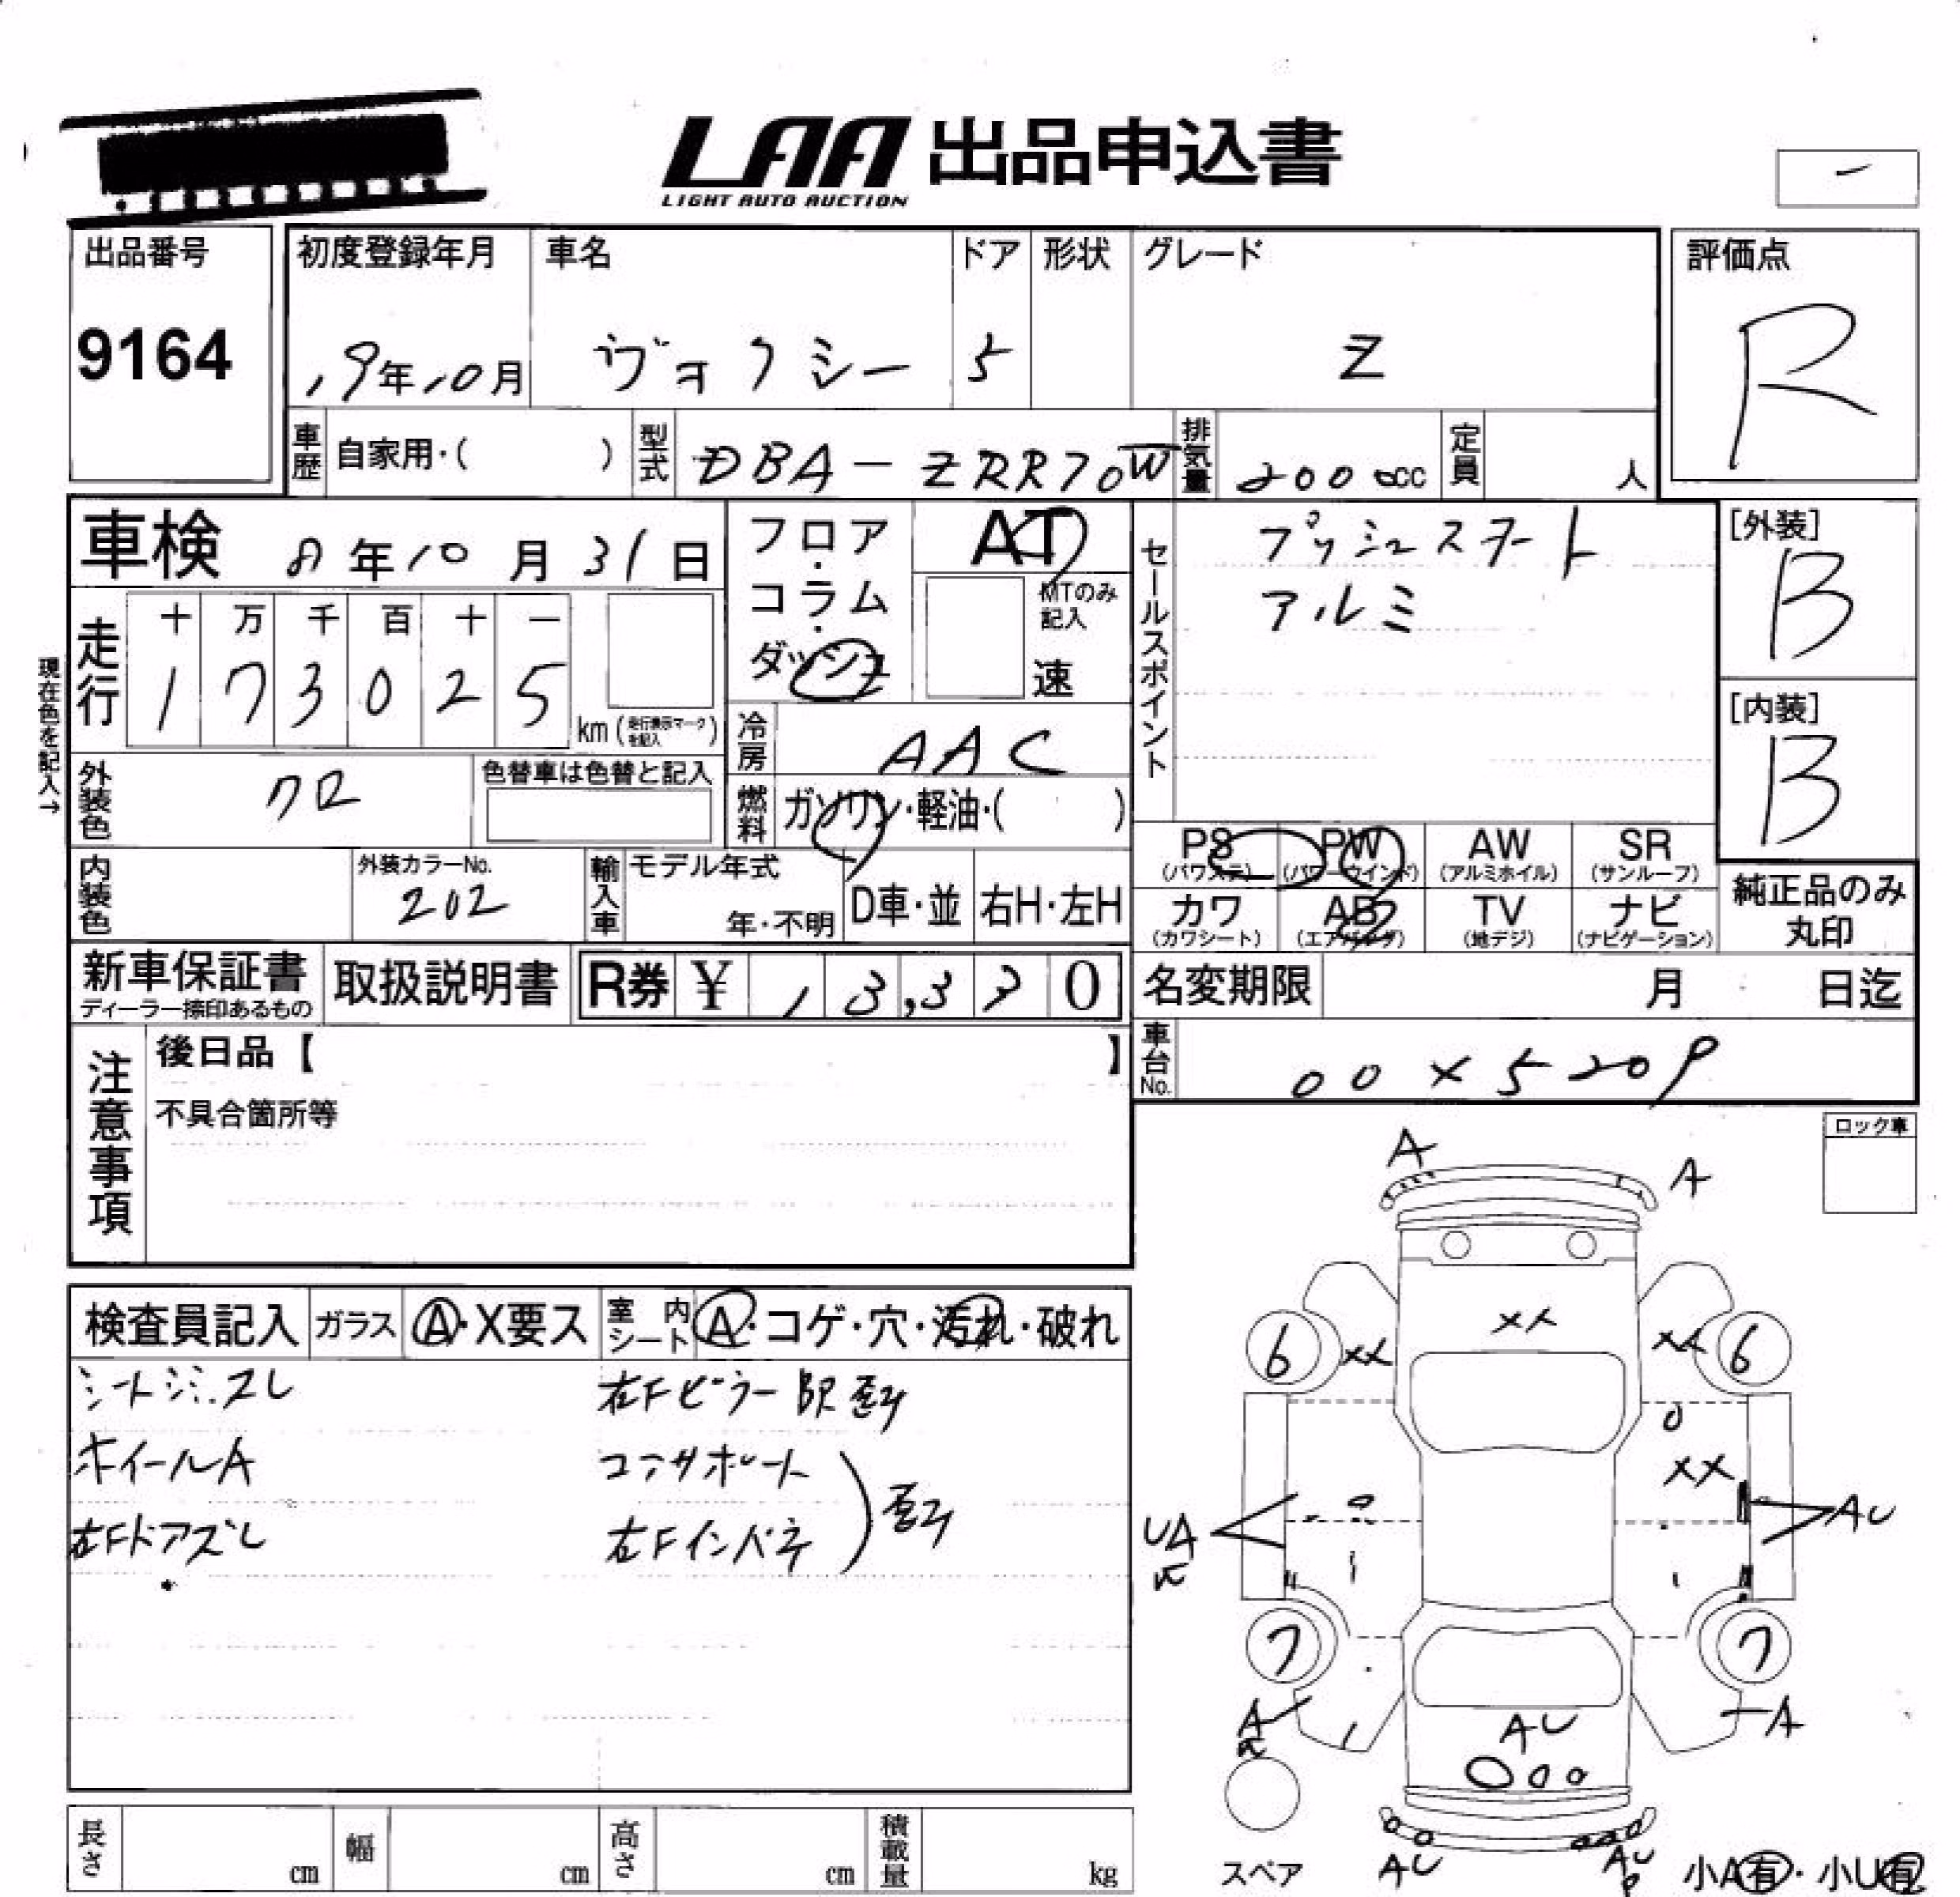 LAA 出品申込書
LIGHT AUTO AUCTION
出品番号
9164
初度登録年月
19年10月
車名
ヴォクシー
ドア
5
形状
グレード
Z
評価点
R
車歴 自家用・( )
型式 DBA-ZRR70W
排気量 2000cc
定員 人
車検 8年10月31日
フロア・コラム・ダッシュ
AT
MTのみ記入
速
セールスポイント
プッシュスタート
アルミ
[外装]
B
[内装]
B
現在色を記入→
走行
十 万 千 百 十 一
1 7 3 0 2 5
km(走行表示マークを記入)
冷房 AAC
燃料 ガソリン・軽油・( )
外装色 クロ
色替車は色替と記入
内装色
外装カラーNo.
202
輸入車 モデル年式
年・不明
D車・並
右H・左H
PS
(パワステ)
PW
(パワーウインド)
AW
(アルミホイル)
SR
(サンルーフ)
カワ
(カワシート)
AB
(エアバッグ)
TV
(地デジ)
ナビ
(ナビゲーション)
純正品のみ
丸印
新車保証書
ディーラー捺印あるもの
取扱説明書
R券 ¥ 13,330
名変期限 月 日迄
車台No. 00×5209
注意事項
後日品【 】
不具合箇所等
ロック車
検査員記入
ガラス A・X要ス
室内シート A・コゲ・穴・汚れ・破れ
シートシミ.スレ
ホイールA
右Fドアズレ
右Fピラー
コアサポート
右Fインパネ
A
A
XX
6
XX
XX
6
XX
UA
AU
7
7
A
A
AU
AU
AU
P
スペア
小A有・小U有
長さ cm
幅 cm
高さ cm
積載量 kg